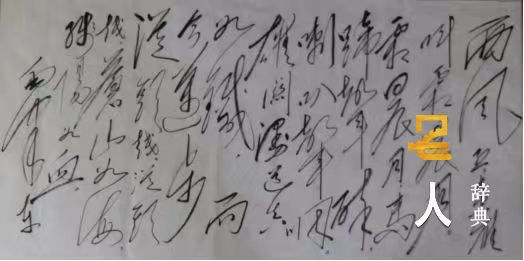 西风长空雁
叫霜晨月
霜晨月马
蹄声碎
喇叭声咽
雄关漫道真
如铁而
今迈步
从头越从头
越苍山如海
残阳如血
毛泽东
人
辞典